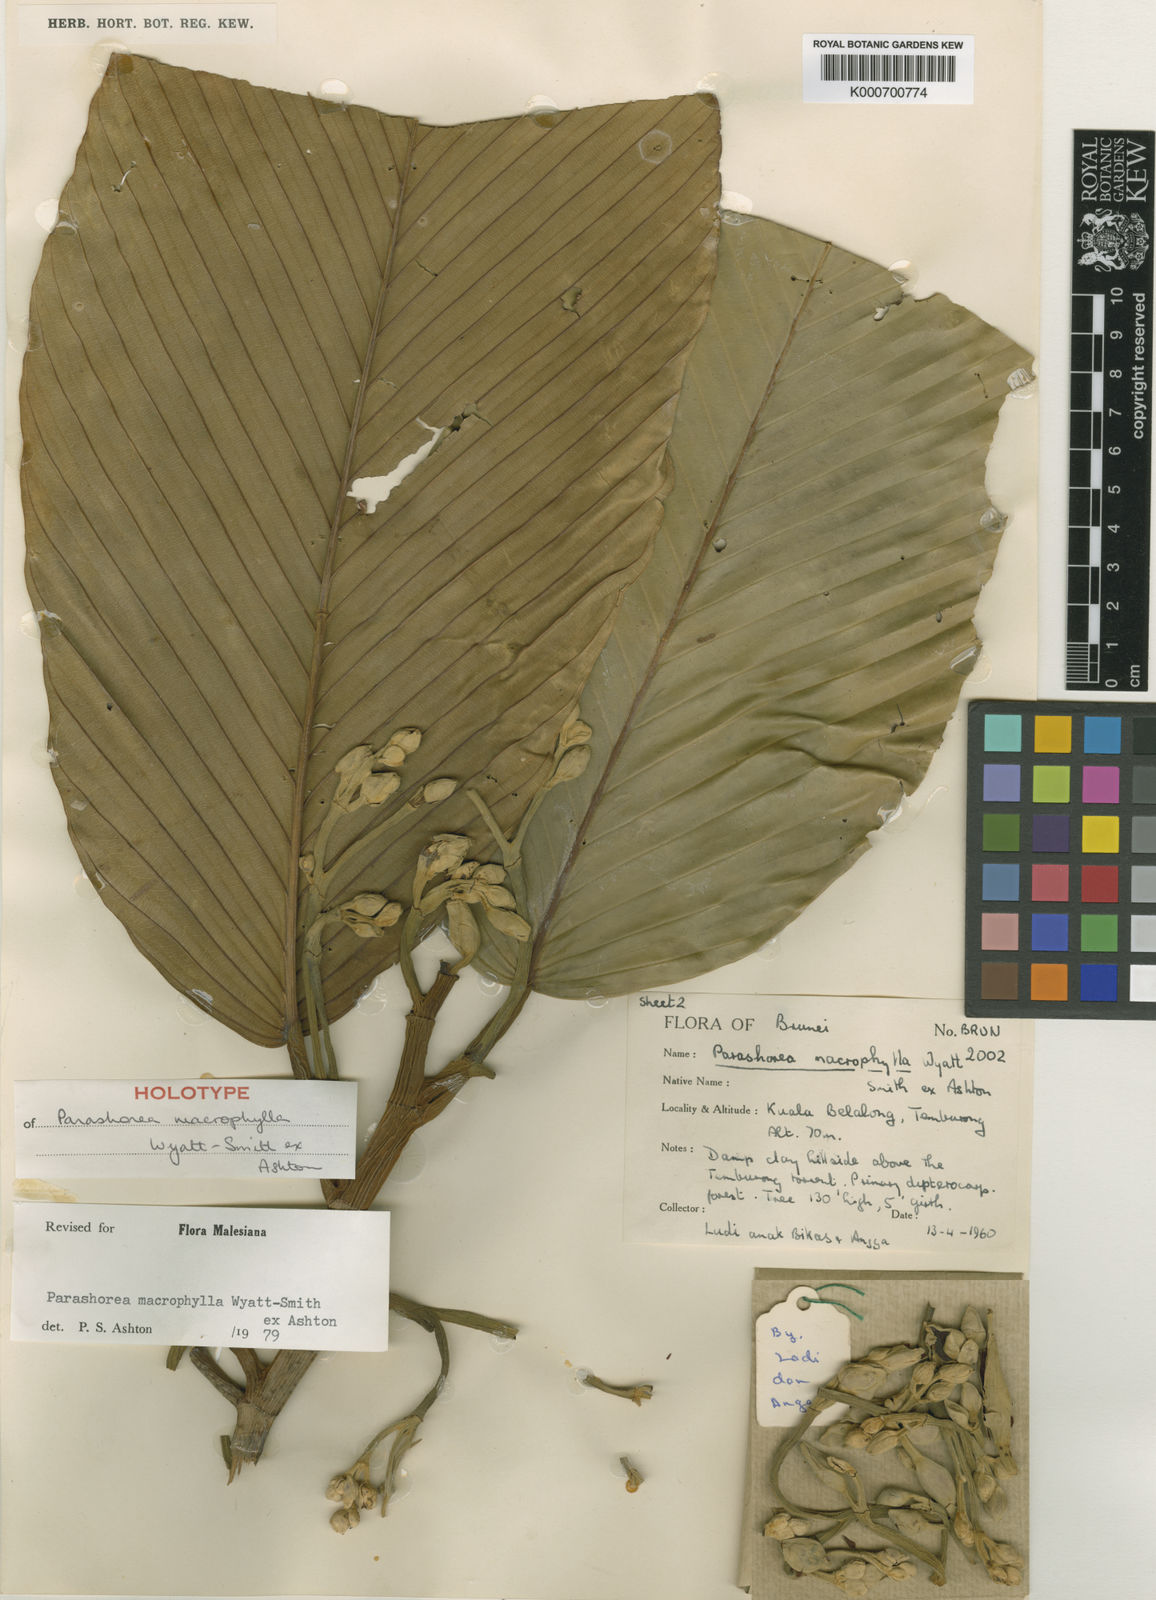 HERB. HORT. BOT. REG. KEW.
ROYAL BOTANIC GARDENS KEW
K000700774
ROYAL BOTANIC GARDENS KEW
copyright reserved
0 1 2 3 4 5 6 7 8 9 10
cm
Sheet 2
FLORA OF Brunei No. BRUN
Name: Parashorea macrophylla Wyatt 2002
Native Name: Smith ex Ashton
Locality & Altitude: Kuala Belalong, Temburong
Alt. 70m.
Notes: Damp clay hillside above the
Temburong torrent. Primary dipterocarp.
forest. Tree 130' high, 5' girth.
Collector: Date: 13-4-1960
Ludi anak Bikas & Angga
HOLOTYPE
of Parashorea macrophylla
Wyatt-Smith ex
Ashton
Revised for Flora Malesiana
Parashorea macrophylla Wyatt-Smith
ex Ashton
det. P. S. Ashton /19 79
By.
Ludi
dan
Angga